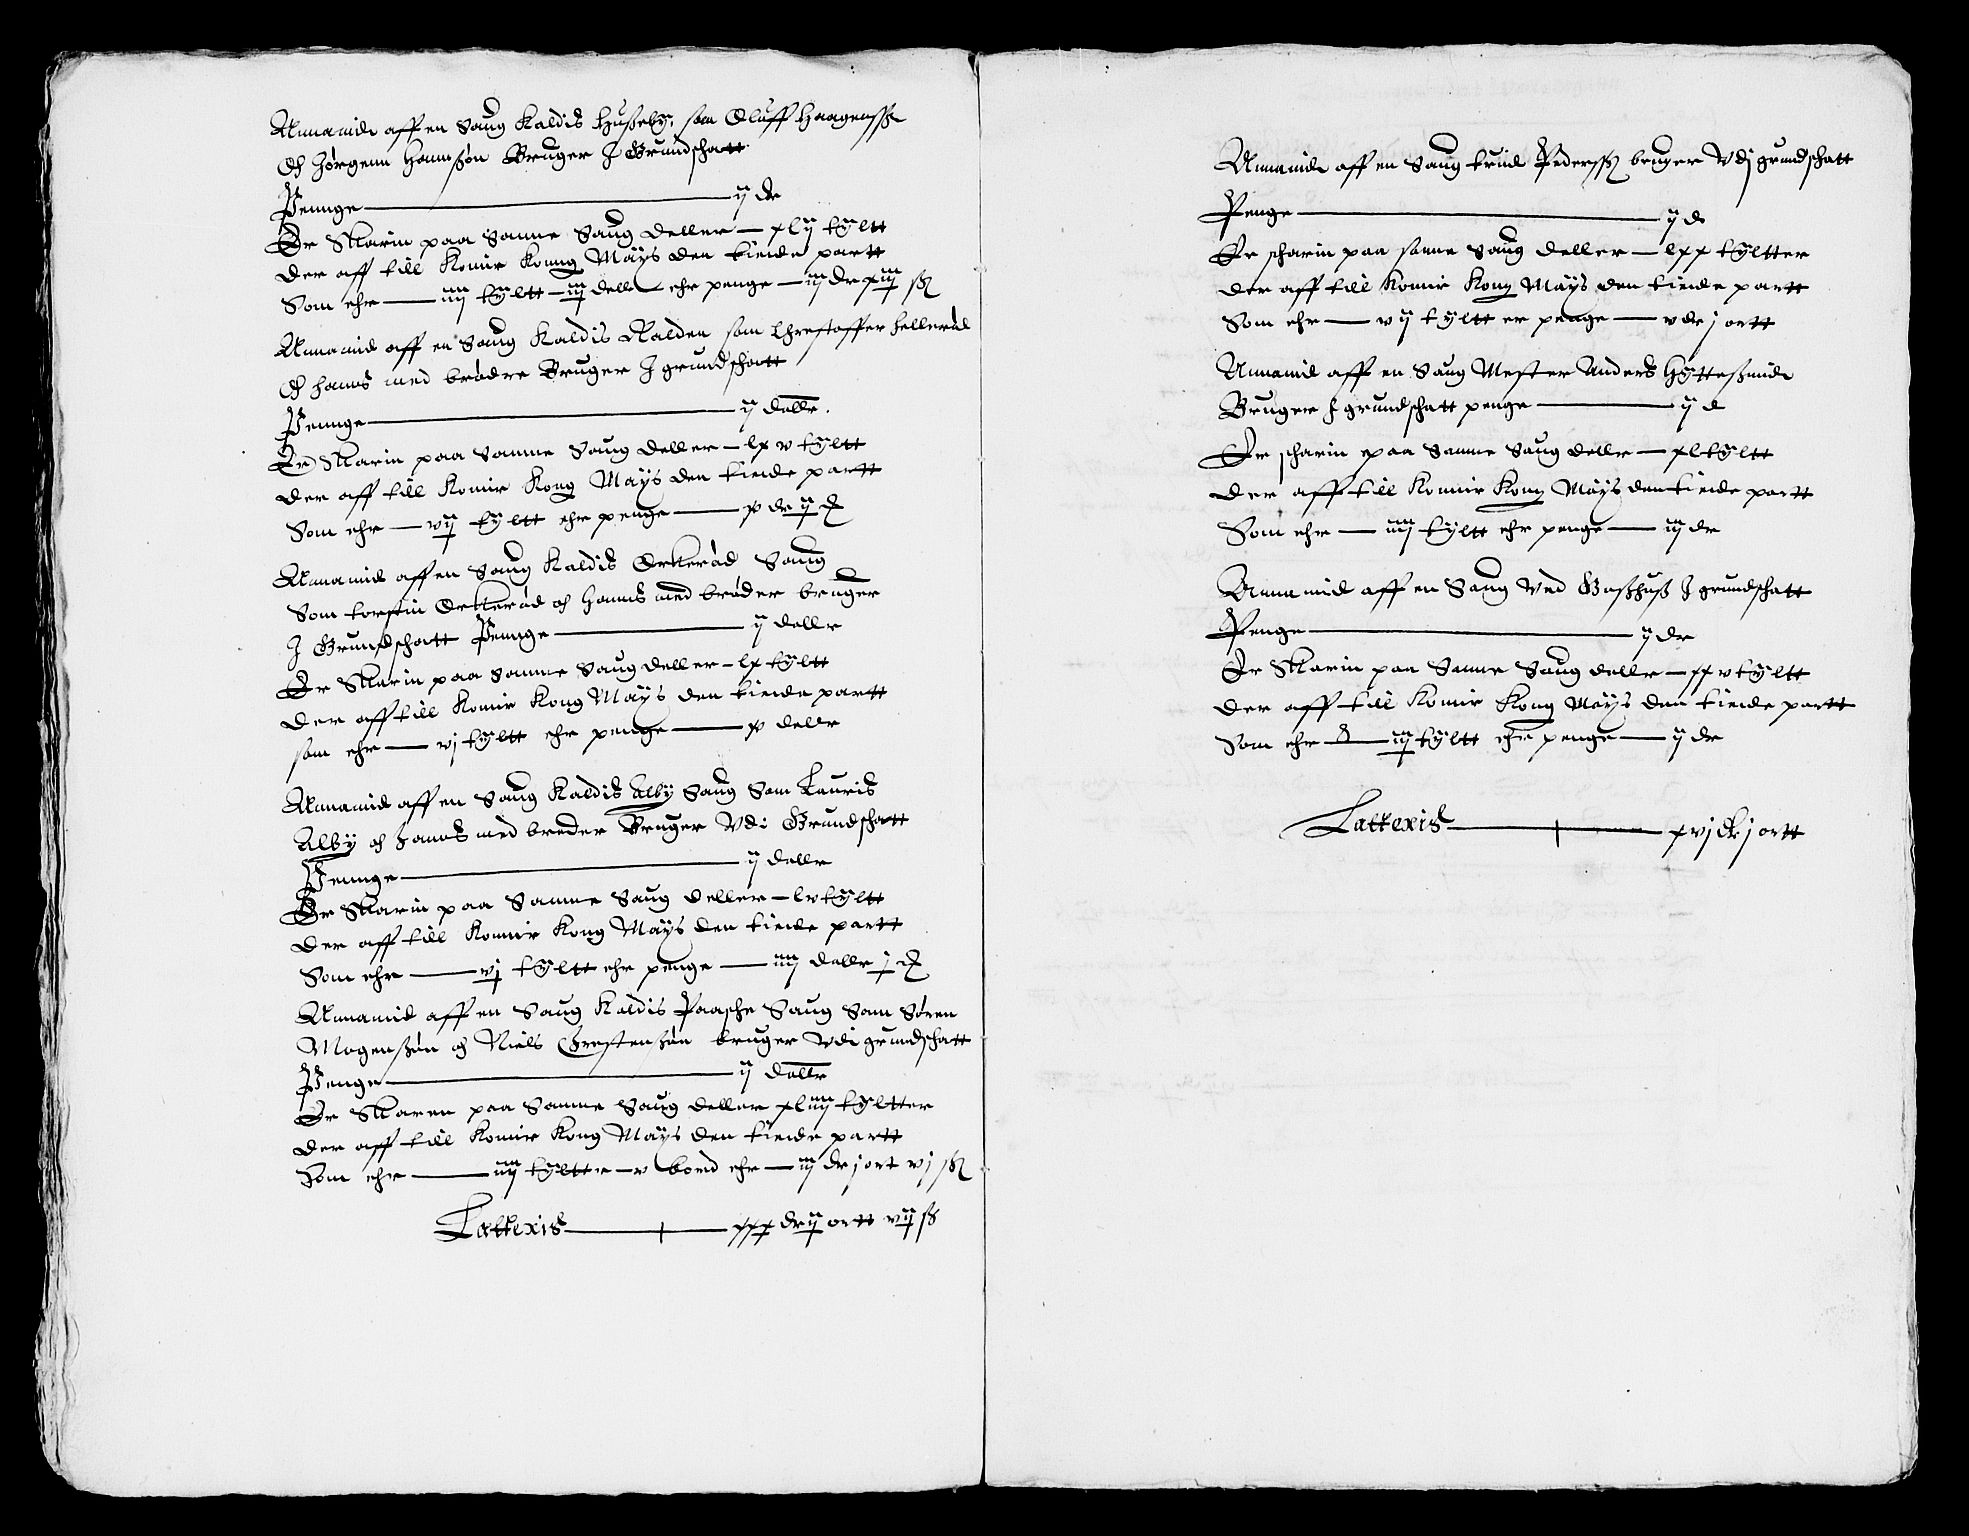 Annamid aff en Saug Kaldis Hußeby, som Oluff Haagenssß
Och Jørgenn Hannsßøn Bruger J Grundschatt
Pennge — ij dr
Er Skarin paa Samme Saug deller — xlij tyltt
der aff till Konnir Konng Mays den tiende partt
Som ehr — iiij tyltt — iij dell ehr penge — iij dr xiiij sß
Annamid aff en Saug Kaldis Ralden som Chrestoffer Hellerød
Och hanns med brødre Bruger J grundschatt
Pennge — ij dallr.
Er Skarin paa Samme Saug deller — lxv tyltt
der aff till Konnir Kong Mays den tiende partt
Som ehr — vij tyltt ehr penge — v dr ij
Annamid aff en Saug Kaldis Orkerød Saug
Som torstin Orkerød och Hanns med brøder bruger
J Grundschatt Pennge — ij dallr
Er Skarin paa Samme Saug deller — lx tyltt
der aff till Konnir Kong Mays den tiende partt
som ehr — vj tyltt ehr penge — v dallr
Annamid aff en Saug Kaldis Alby Saug Som Lauris
Alby och Hanns med breder Bruger Vdi Grundschatt
Pennge — ij dallr
Er Skarin paa Samme Saug deller — lv tyltt
der aff till Konnir Kong Mays den tiende partt
Som ehr — vj tyltt ehr penge — iiij dallr j
Annamid aff en Saug Kaldis Paasche Saug Som Søren
Mogensßøn och Niels Chrestensßøn bruger Vdi grundschatt
Penge — ij dallr
Er Skaren paa Samme Saug deller xliiij tyltter
der aff till Konnir Kong Mays den tiende partt
Som ehr — iiij tyltter — v bord ehr — iij dr j ort vj sß
Lattexis — xxx dr ij ortt vij ß
Annamid aff en Saug truid Pederssß bruger Vdj grundschatt
Penge — ij d
Er scharin paa samme Saug deller — lxx tyltter
der aff till Konnir Kong Mays den tiende partt
Som ehr — vij tyltt er penge — v dr j ortt
Annamid aff en Saug Mester Anders Hytteßmid
Bruger J grundschatt penge — ij d
Er scharin paa Samme Saug dellr — xl tyltt
der aff till Konnir Kong Mays den tiende partt
Som ehr — iiij tyltt ehr penge — iij dr
Annamid aff en Saug Ved Gaßhuß J grundschatt
Penge — ij dr
Er Skarin paa Samme Saug dellr — xxv tyltt
der aff till Konnir Kong Mays den tiende partt
Som ehr — iij tyltt ehr penge — ij dr
Lattexis — xvj dr j ortt